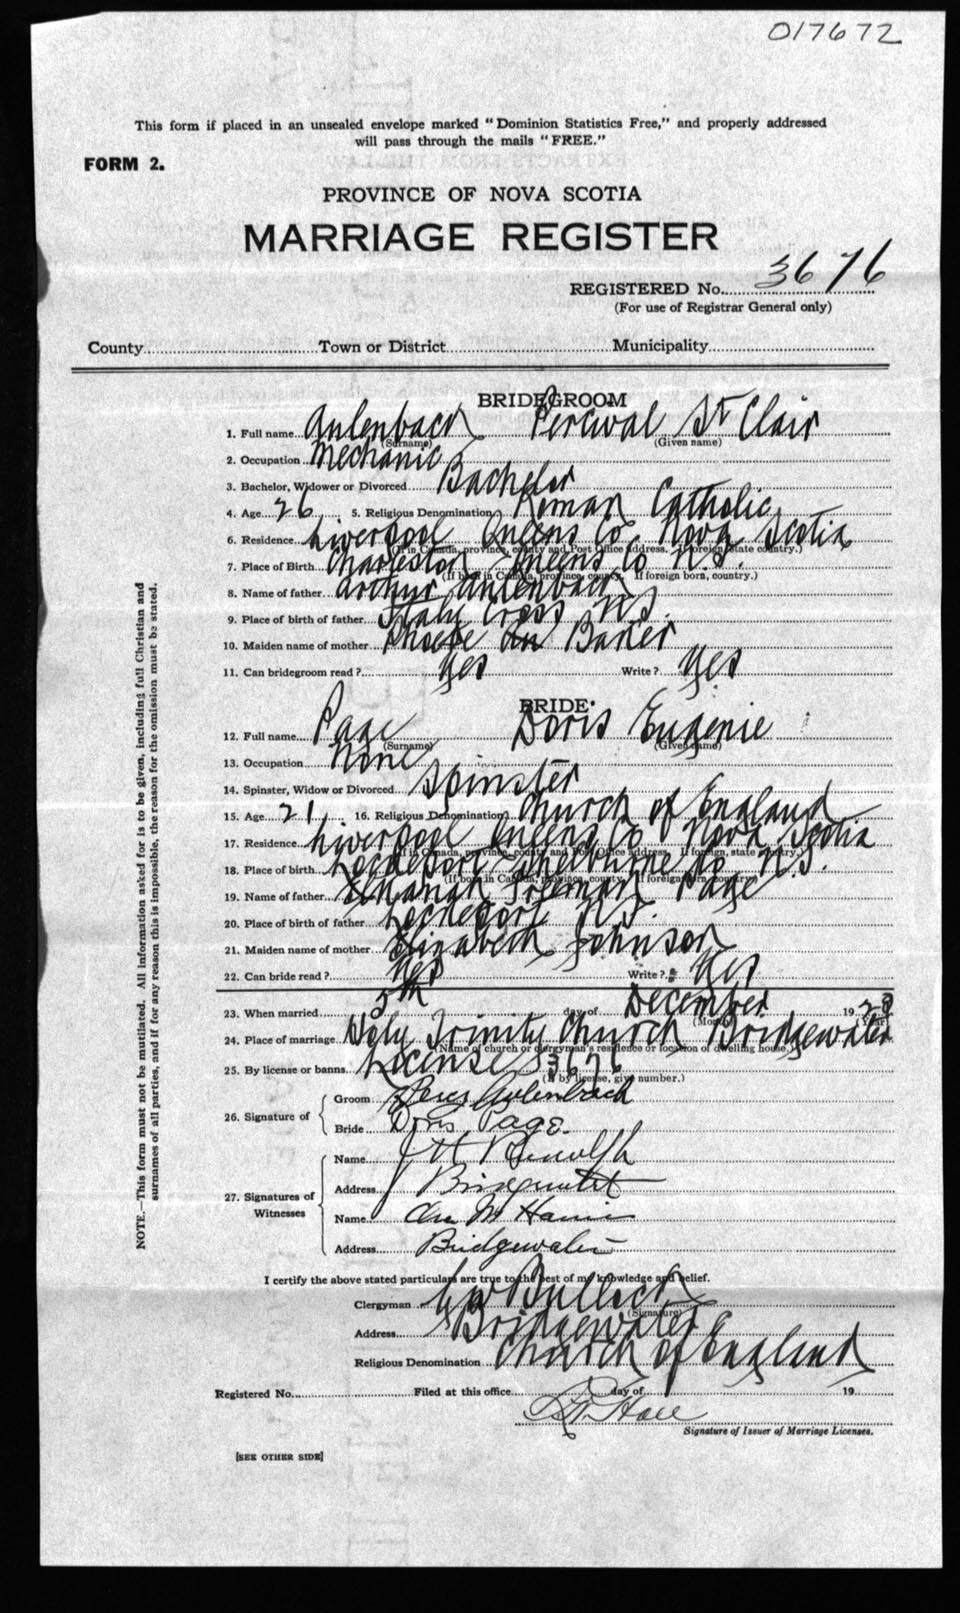 017672
This form if placed in an unsealed envelope marked "Dominion Statistics Free," and properly addressed
will pass through the mails "FREE."
FORM 2.
PROVINCE OF NOVA SCOTIA
MARRIAGE REGISTER
REGISTERED No. 3676
(For use of Registrar General only)
County Town or District Municipality
BRIDEGROOM
1. Full name Aulenback Percival St Clair
(Surname) (Given name)
2. Occupation Mechanic
3. Bachelor, Widower or Divorced Bachelor
4. Age 26 5. Religious Denomination Roman Catholic
6. Residence Liverpool Queens Co Nova Scotia
(If in Canada, province, county and Post Office address. If foreign, state country.)
7. Place of Birth Charleston Queens Co N.S.
(If born in Canada, province, county. If foreign born, country.)
8. Name of father Arthur Aulenback
9. Place of birth of father Italy Cross N.S.
10. Maiden name of mother Phoebe Baker
11. Can bridegroom read? Yes Write? Yes
BRIDE
12. Full name Page Doris Eugenie
(Surname) (Given name)
13. Occupation None
14. Spinster, Widow or Divorced Spinster
15. Age 21 16. Religious Denomination Church of England
17. Residence Liverpool Queens Co Nova Scotia
(If in Canada, province, county and Post Office address. If foreign, state country.)
18. Place of birth Lockeport Shelburne Co N.S.
(If born in Canada, province, county. If foreign born, country.)
19. Name of father Freeman Page
20. Place of birth of father Lockeport N.S.
21. Maiden name of mother Elizabeth Johnson
22. Can bride read? Yes Write? Yes
23. When married 5th day of December 1928
(Month) (Year)
24. Place of marriage Holy Trinity Church Bridgewater
(Name of church or clergyman's residence or location of dwelling house.)
25. By license or banns License 3676
(If by license, give number.)
26. Signature of
Groom Aulenback
Bride Doris Page.
27. Signatures of Witnesses
Name J H
Address Bridgewater
Name M
Address Bridgewater
I certify the above stated particulars are true to the best of my knowledge and belief.
Clergyman Bullock
(Signature)
Address Bridgewater
Religious Denomination Church of England
Registered No. Filed at this office day of 19
Signature of Issuer of Marriage Licenses.
[SEE OTHER SIDE]
NOTE.—This form must not be mutilated. All information asked for is to be given, including full Christian and
surnames of all parties, and if for any reason this is impossible, the reason for the omission must be stated.